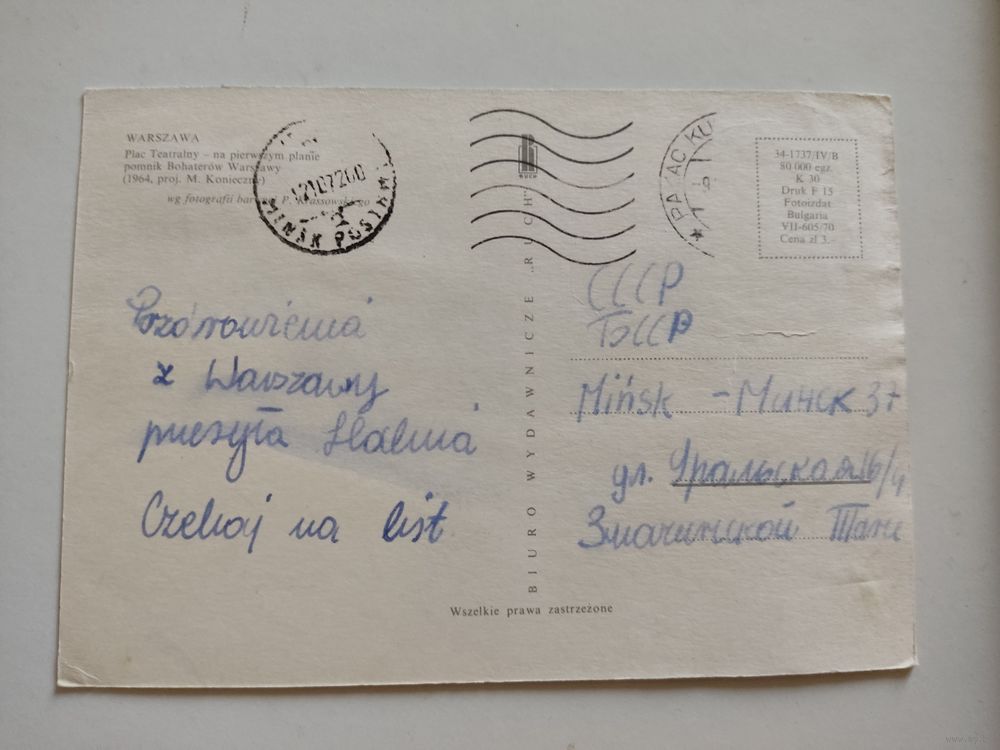 WARSZAWA
Plac Teatralny – na pierwszym planie
pomnik Bohaterów Warszawy
(1964, proj. M. Konieczny)
wg fotografii barwnej P. Krassowskiego
MINSK POSTAMT
PAŁAC KU
34-1737/IV/B
80 000 egz.
K 30
Druk F 15
Fotoizdat
Bulgaria
VII-605/70
Cena zł 3.–
RUCH
BIURO WYDAWNICZE „RUCH"
Pozdrowienia
z Warszawy
przesyła Halina
Czekaj na list
СССР
БССР
Mińsk – Минск 37
ул. Уральская 16/4
Тане
Wszelkie prawa zastrzeżone